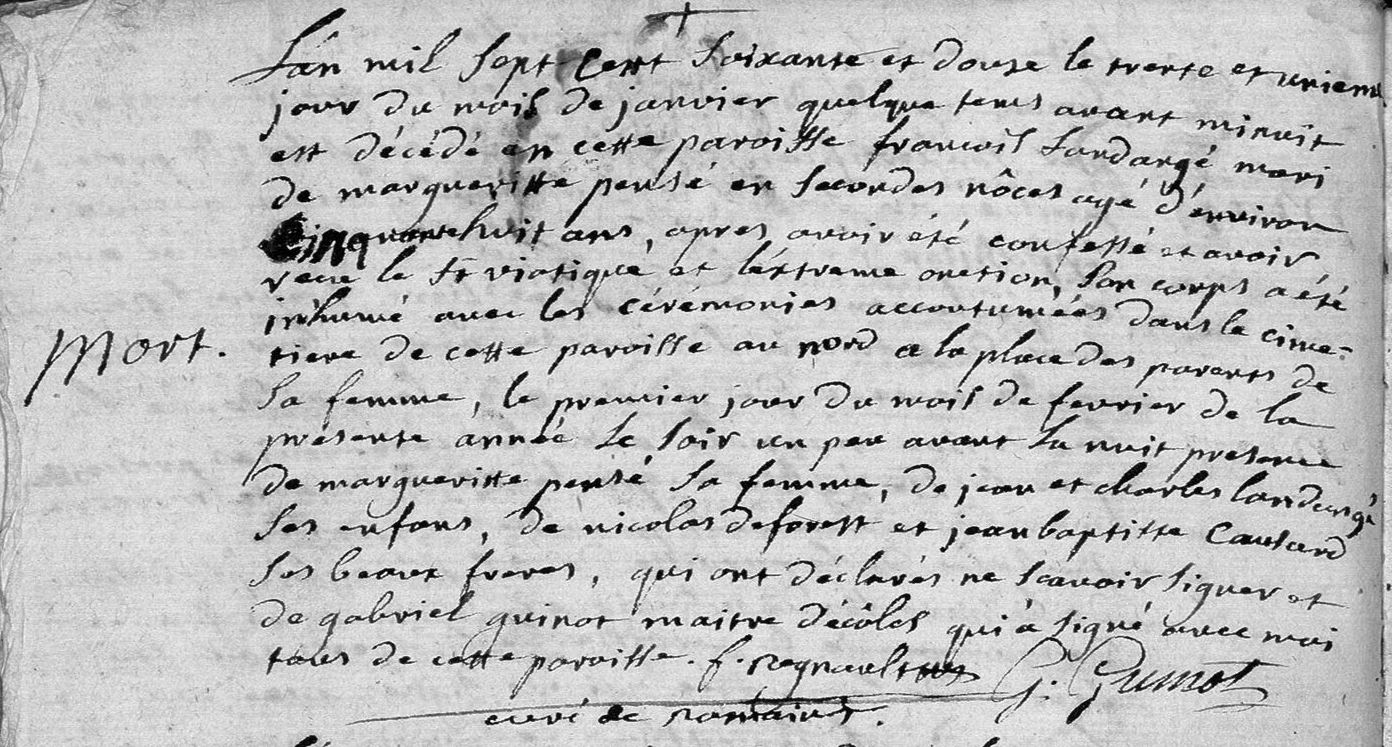 L'an mil sept cent soixante et douse le trente et unieme
jour du mois de janvier quelque tems avant minuit
est décédé en cette paroisse francois Landargé mari
de margueritte pensé en secondes nôces agé d'environ
Cinquante huit ans, apres avoir été confessé et avoir
recu le st viatiqué et léxtreme onction, son corps a été
inhumé avec les cérémonies accoutumées dans le cime=
tiere de cette paroisse au nord a la place des parents de
Mort.
sa femme, le premier jour du mois de fevrier de la
présente année le soir un peu avant la nuit presence
de margueritte pensé sa femme, de jean et charles landargé
ses enfans, de nicolas deforest et jean baptiste
ses beaux freres, qui ont déclarés ne scavoir signer et
de gabriel guinot maitre d'écôles qui à signé avec moi
tous de cette paroisse. f. regnault G. Guinot
curé de romains.